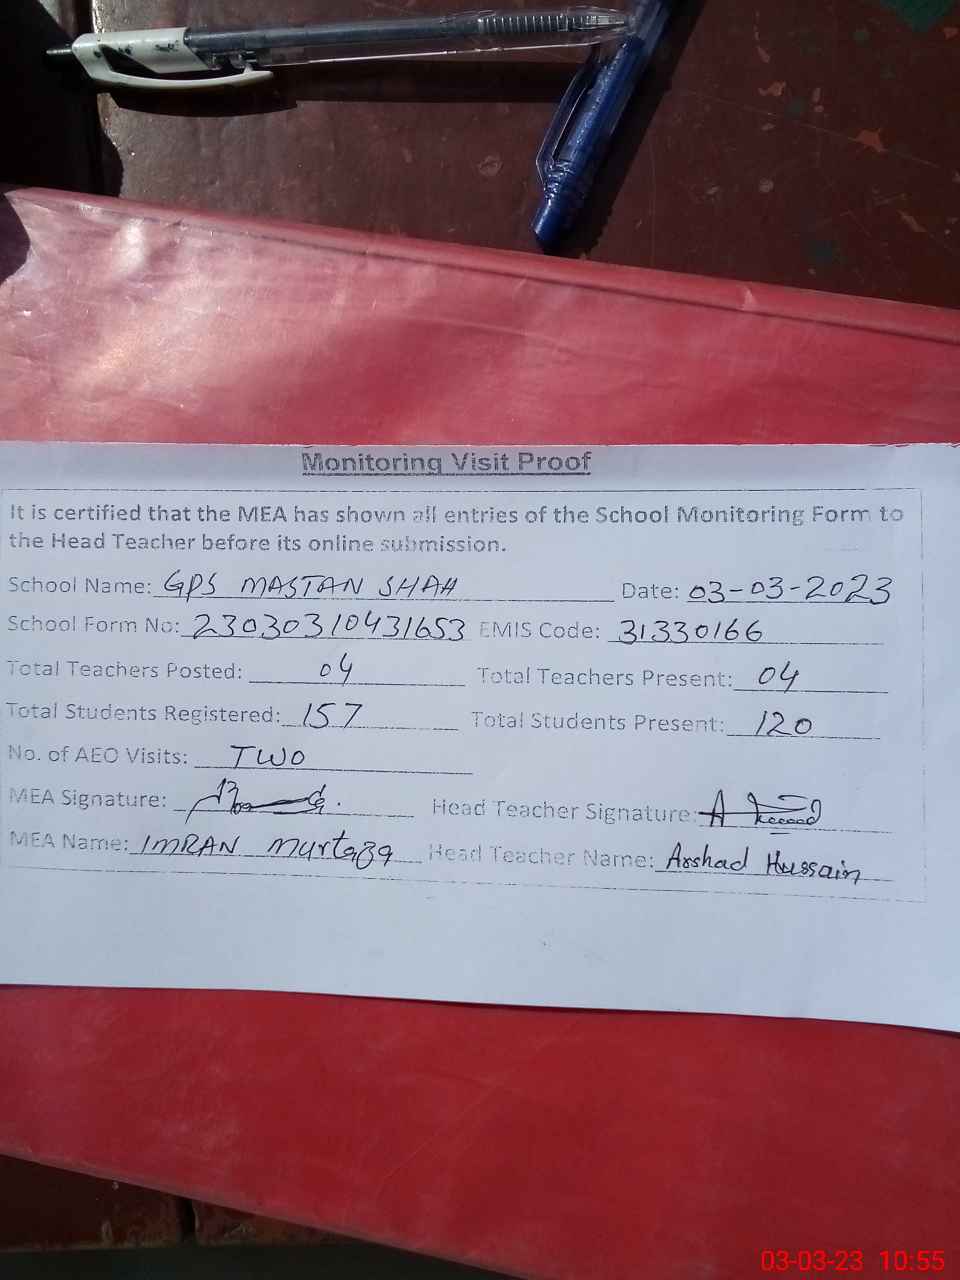 Monitoring Visit Proof
It is certified that the MEA has shown all entries of the School Monitoring Form to
the Head Teacher before its online submission.
School Name: GPS MASTAN SHAH Date: 03-03-2023
School Form No: 23030310431653 EMIS Code: 31330166
Total Teachers Posted: 04 Total Teachers Present: 04
Total Students Registered: 157 Total Students Present: 120
No. of AEO Visits: TWO
MEA Signature: Head Teacher Signature:
MEA Name: IMRAN Murtaza Head Teacher Name: Arshad Hussain
03-03-23 10:55